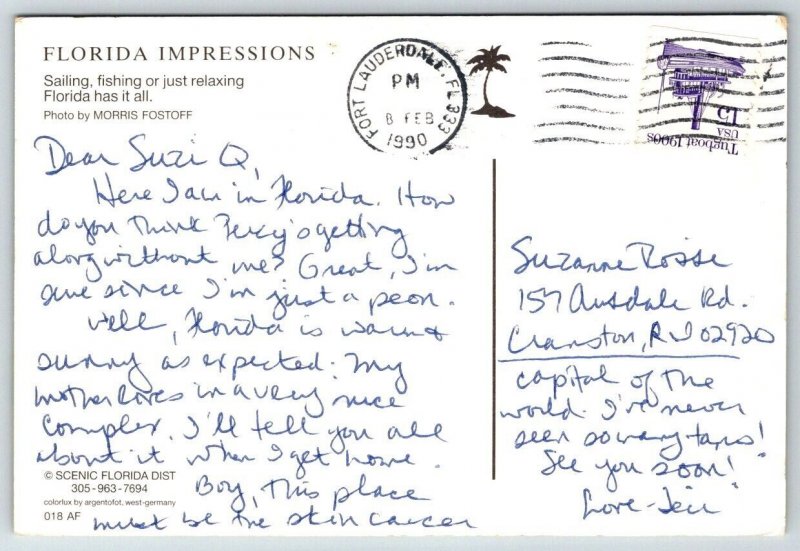 FLORIDA IMPRESSIONS
Sailing, fishing or just relaxing
Florida has it all.
Photo by MORRIS FOSTOFF
FORT LAUDERDALE, FL 333
PM
8 FEB
1990
15
USA
Tugboat 1900s
Dear Suzi Q,
Here I am in Florida. How
do you think Percy's getting
along without me? Great, I'm
sure since I'm just a peon.
Well, Florida is warm &
sunny as expected. My
mother lives in a very nice
complex. I'll tell you all
about it when I get home.
Boy, this place
must be the skin cancer
© SCENIC FLORIDA DIST
305-963-7694
colorlux by argentofot, west-germany
018 AF
Suzanne
157 Rd.
Cranston, RI 02920
capital of the
world. I've never
seen so many tans!
See you soon!
Love - Jeri